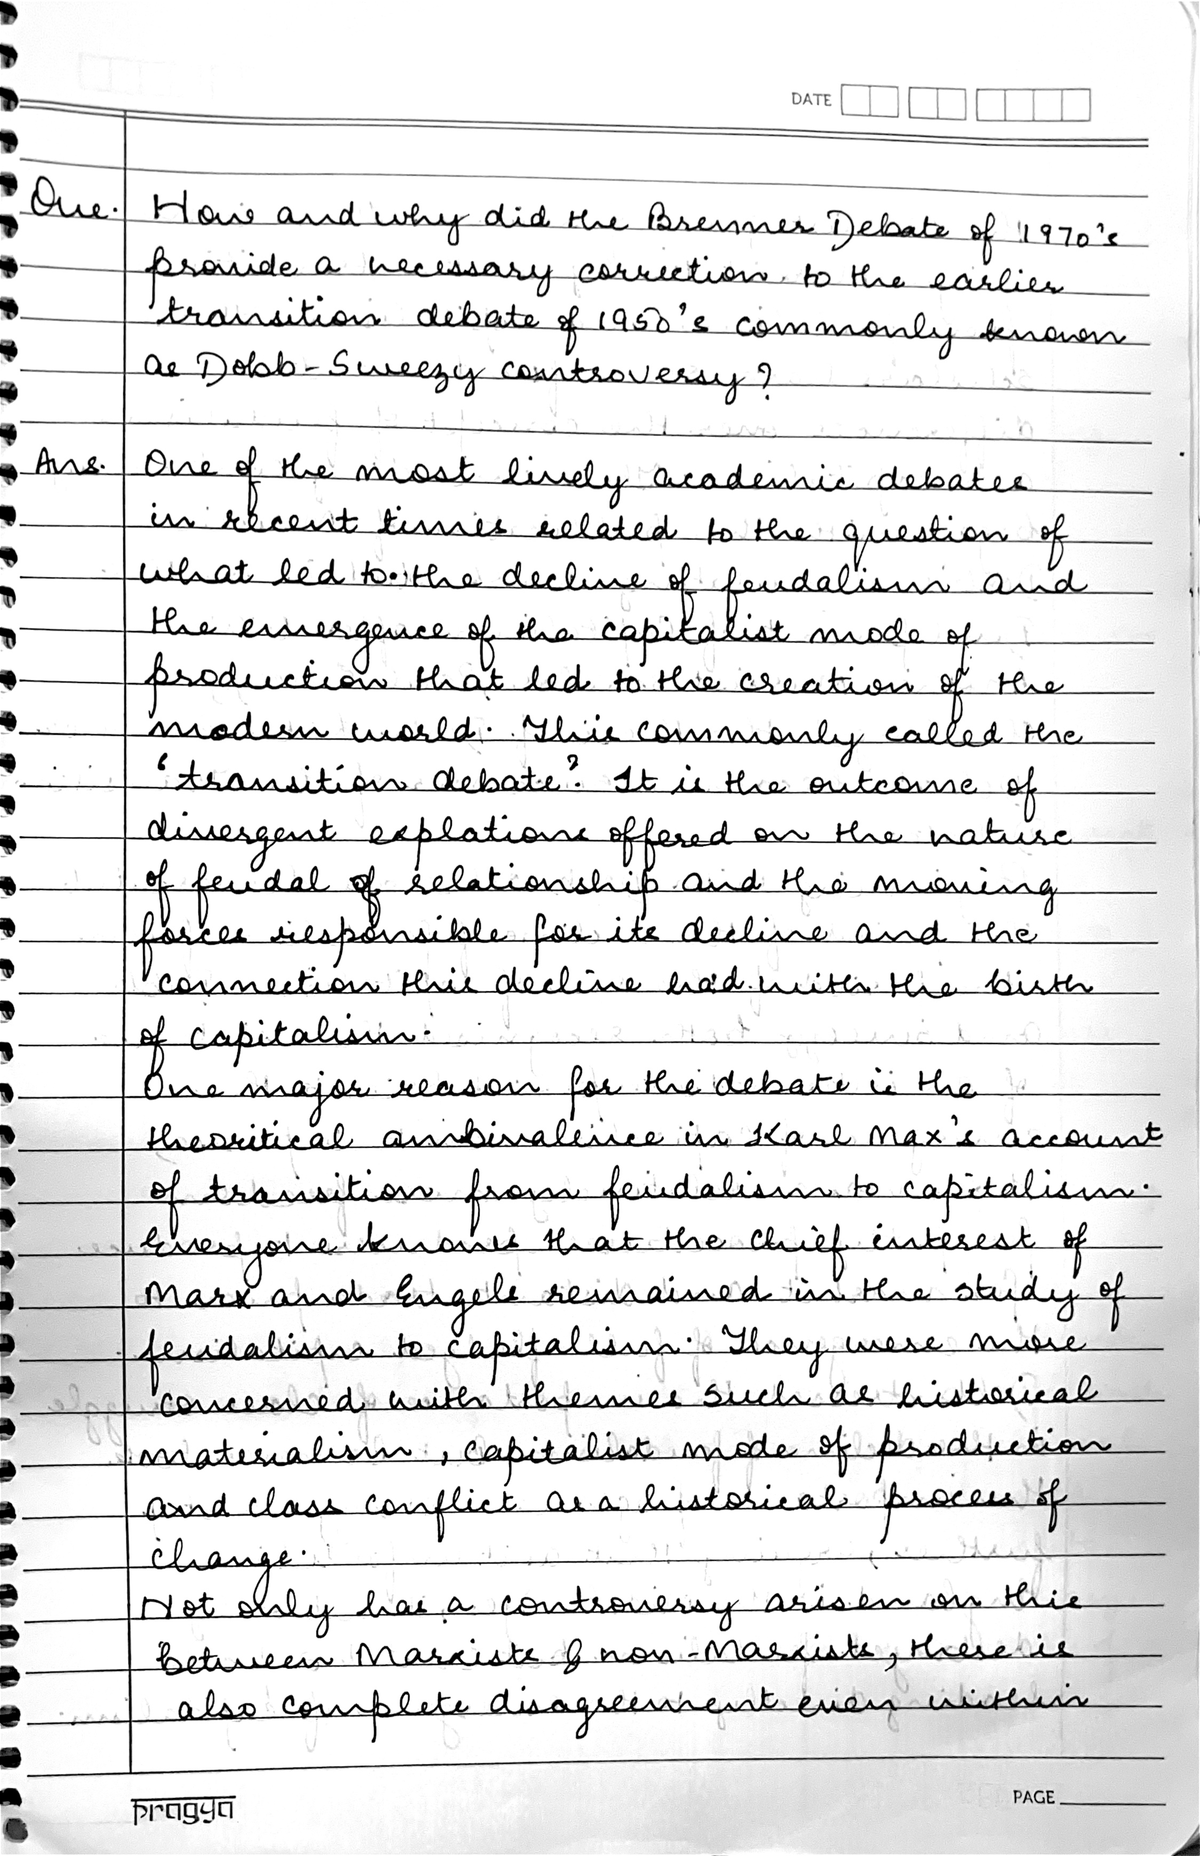 DATE
Que. How and why did the Brenner Debate of 1970's
provide a necessary correction to the earlier
transition debate of 1950's commonly known
as Dobb-Sweezy controversy?
Ans. One of the most lively academic debates
in recent times related to the question of
what led to the decline of feudalism and
the emergence of the capitalist mode of
production that led to the creation of the
modern world. This commonly called the
'transition debate'. It is the outcome of
divergent explations offered on the nature
of feudal of relationship and the moving
forces responsible for its decline and the
connection this decline had with the birth
of capitalism.
One major reason for the debate is the
theoritical ambivalence in Karl Max's account
of transition from feudalism to capitalism.
Everyone knows that the chief interest of
Marx and Engels remained in the study of
feudalism to capitalism. They were more
concerned with themes such as historical
materialism, capitalist mode of production
and class conflict as a historical process of
change.
Not only has a controversy arisen on this
between Marxists & non-Marxists, there is
also complete disagreement even within
pragya
PAGE